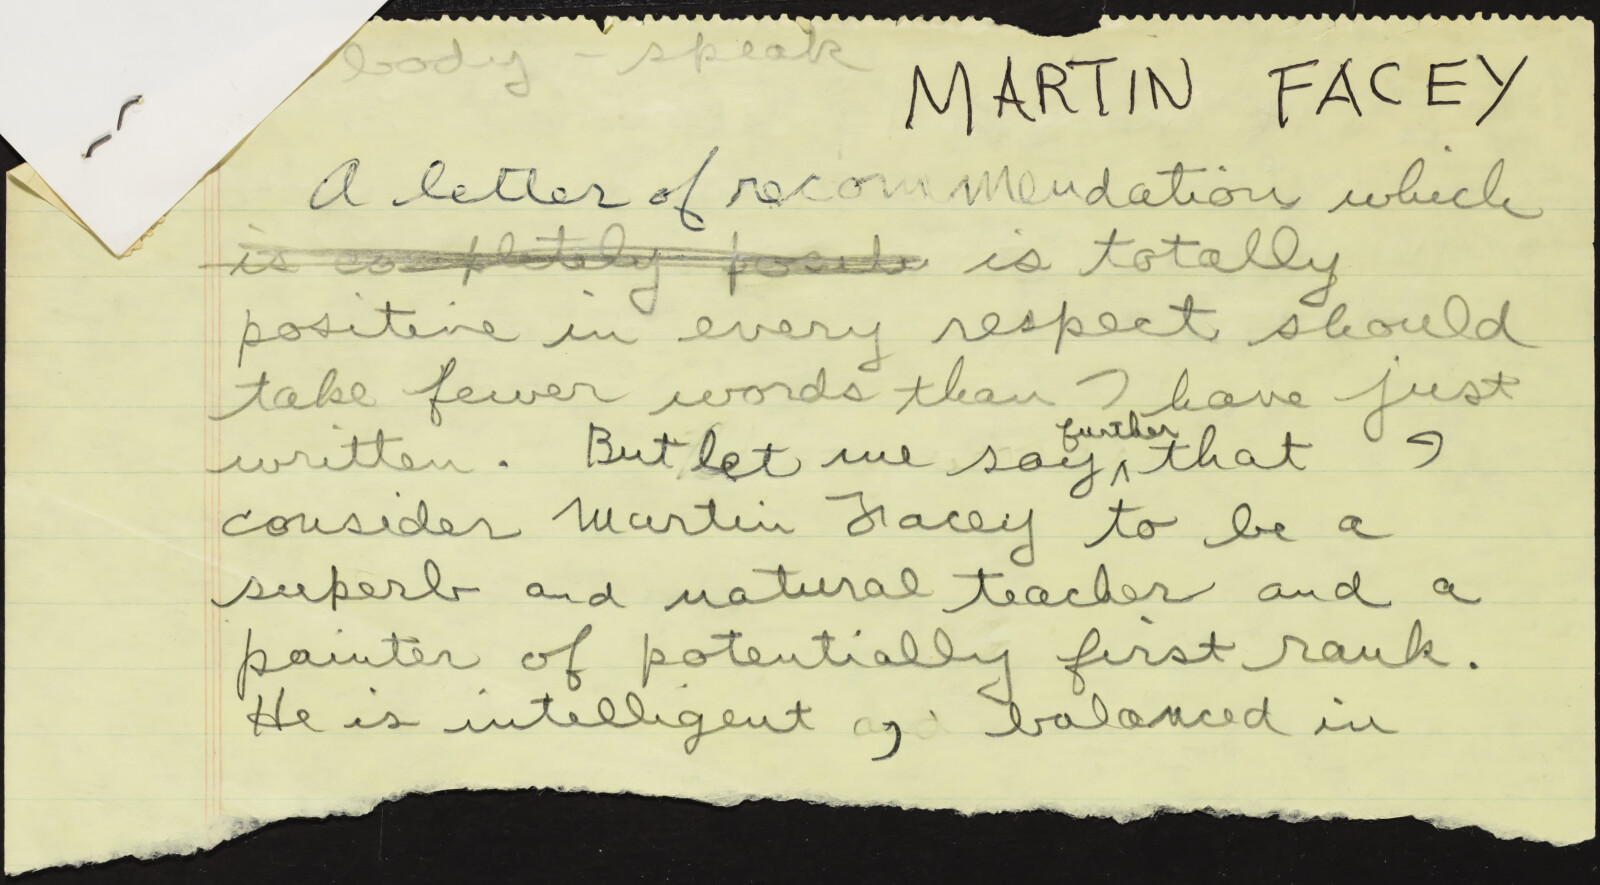 body - speak
MARTIN FACEY
A letter of recommendation which
is completely is totally
positive in every respect should
take fewer words than I have just
written. But let me say further that I
consider Martin Facey to be a
superb and natural teacher and a
painter of potentially first rank.
He is intelligent , balanced in